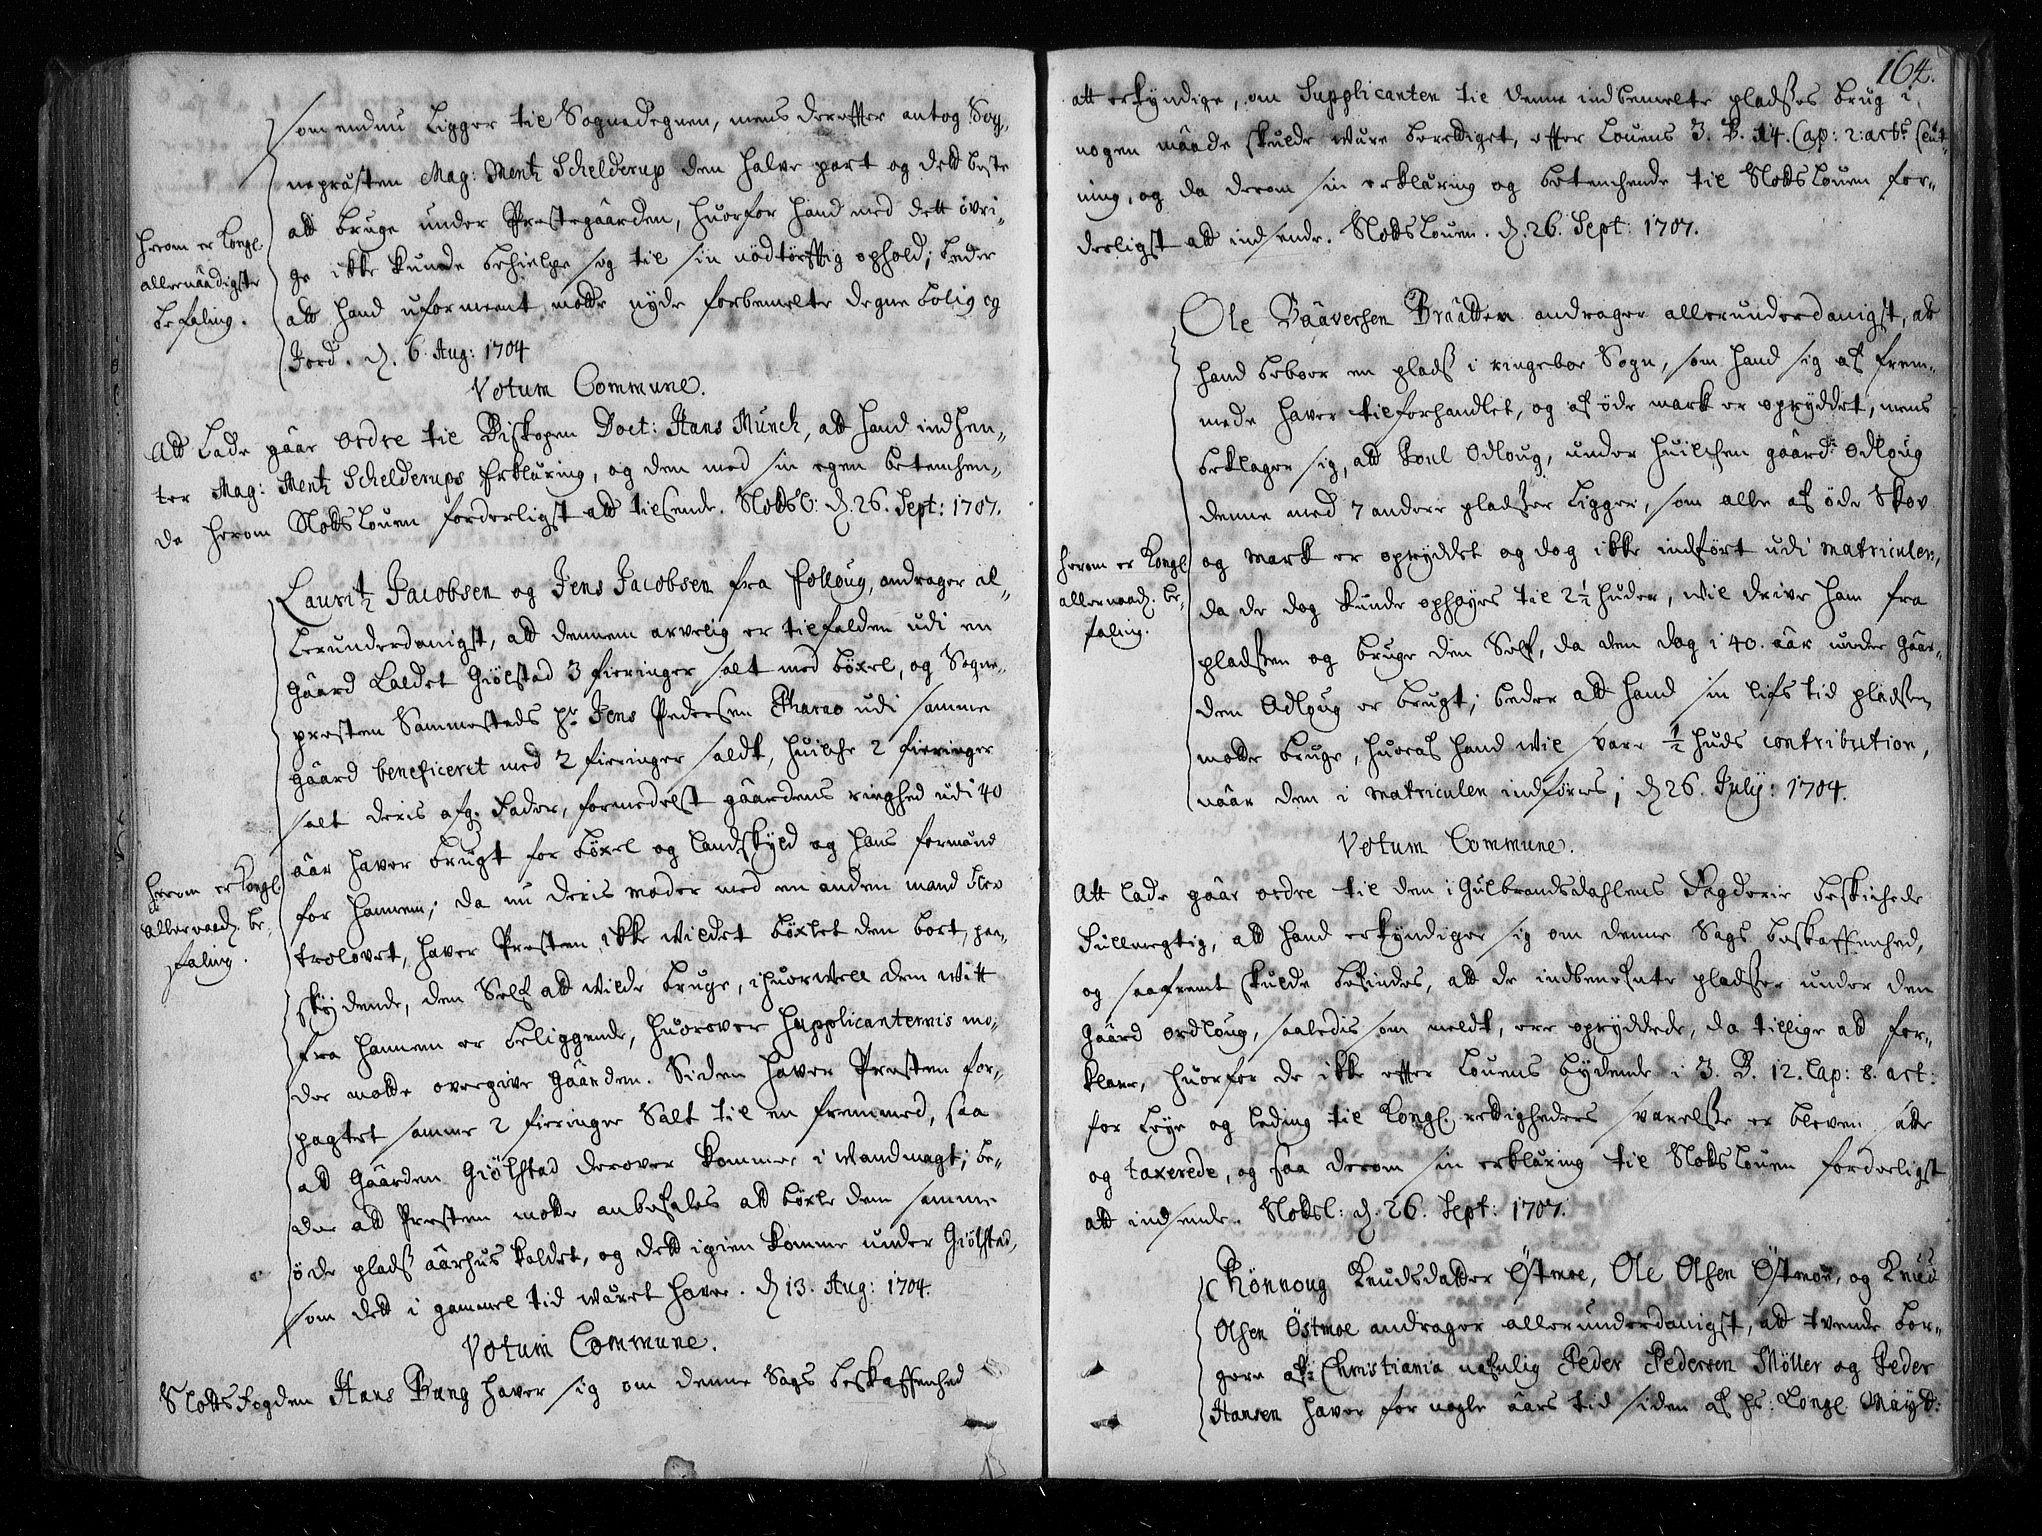 som endnu ligger til Sognedegnen, mens derefter antog Sog-
nepræsten Mag: Mentz Schelderup den halve part og dett beste
att bruge under Præstegaarden, huorfor hand med dett øvri-
ge ikke kunde behielpe sig til sin nødtørftig ophold; beder
att hand uformeent motte nyde forbemelte degne bolig og
Jord. d. 6. Aug: 1704
herom er Kongl.
allernaadigste
befaling.
Votum Commune.
Att lade gaae ordre til Biskopen Doct: Hans Munch, att hand indhen-
ter Mag: Mentz Schelderups Erklæring, og den med sin egen betenchen-
de herom Slotsloven forderligst att tilsende. Slotsl: d. 26. Sept: 1707.
Lauritz Jacobsen og Jens Jacobsen fra Folloug, andrager al-
lerunderdanigst, att dennem arvelig er tilfalden udi en
Gaard kaldet Giølstad 3 fieringer salt med bøxel, og Sogne-
presten Sammesteds hr. Jens Pedersen Pharao udi samme
Gaard beneficeret med 2 fieringer saldt, huilche 2 fieringer
salt deris afg. Fader, formedelst gaardens ringhed udi 40
aar haver brugt for bøxel og landskyld og hans formand
for hannem; da nu deris moder med en anden mand blev
trolovet, haver Presten ikke wildet bøxlet dem bort, paa-
skydende, dem Self att wilde bruge, ihuorwell dem witt
fra hannem er beliggende, huorover Supplicanternis mo-
der motte overgive Gaarden. Siden haver Presten for-
pagtet samme 2 fieringer Salt til en fremmed, saa
att Gaarden Giølstad derover kommer i Wandmagt; be-
der att Presten motte anbefales att bøxle dem samme
øde plads aarhus kaldet, og dett igien komme under Giølstad,
som dett i gammel tid wæret haver. d. 13. Aug: 1704.
herom er Kongl.
allernaad. be-
faling.
Votum Commune.
Slotsfogden Hans Bang haver sig om denne Sags beskaffenhed
164.
att erkyndige, om Supplicanten til denne indbemelte pladses brug i
nogen maade skulde være berettiget, efter Lovens 3. B. 14. Cap: 2: art: slut-
ning, og da derom sin erklæring og betenchende til Slotsloven for-
derligst att indsende. Slotsloven. d. 26. Sept: 1707.
Ole Baaversen Braatten andrager allerunderdanigst, at
hand beboer en plads i ringeboe Sogn, som hand sig af frem-
mede haver tilforhandlet, og af øde mark er opryddet, mens
beklager sig, att Poul Odloug, under huilchen gaard Odloug
denne med 7 andre pladser ligger, som alle af øde skov
og mark er opryddet og dog ikke indført udi matriculen,
da de dog kunde ophøyes til 2 1/2 huder, wil drive ham fra
pladsen og bruge den Self, da den dog i 40. aar under Gaar-
den Odloug er brugt; beder att hand sin lifs tid pladsen
motte bruge, huoraf hand wil svare 1/2 huds contribution,
naar den i matriculen indføres; d. 26. July: 1704.
herom er Kongl.
allernaad. be-
faling.
Votum Commune.
Att lade gaae ordre til den i Gulbrandsdahlens Fogderie beskichede
Fuldmegtig, att hand erkyndiger sig om denne Sags beskaffenhed,
og saafremt skulde befindes, att de indbenefnte pladser under den
Gaard ordloug, saaledis som meldt, ere opryddede, da tillige att for-
klare, huorfor de ikke efter Lovens bydende i 3. B. 12. Cap: 8. art:
for Leye og leding til Kongl. rettigheders svarelse er bleven satte
og taxerede, og saa derom sin erklæring til Slotsloven forderligst
att indsende. Slotsl: d. 26. Sept: 1707.
Rønnoug Knudsdatter Østmoe, Ole Olsen Østmoe, og Knud
Olsen Østmoe andrager allerunderdanigst, att tvende bor-
gere af Christiania nafnlig Peder Pedersen Møller og Peder
Hansen haver for nogle aars tid siden af hs: Kongl. Mayst: